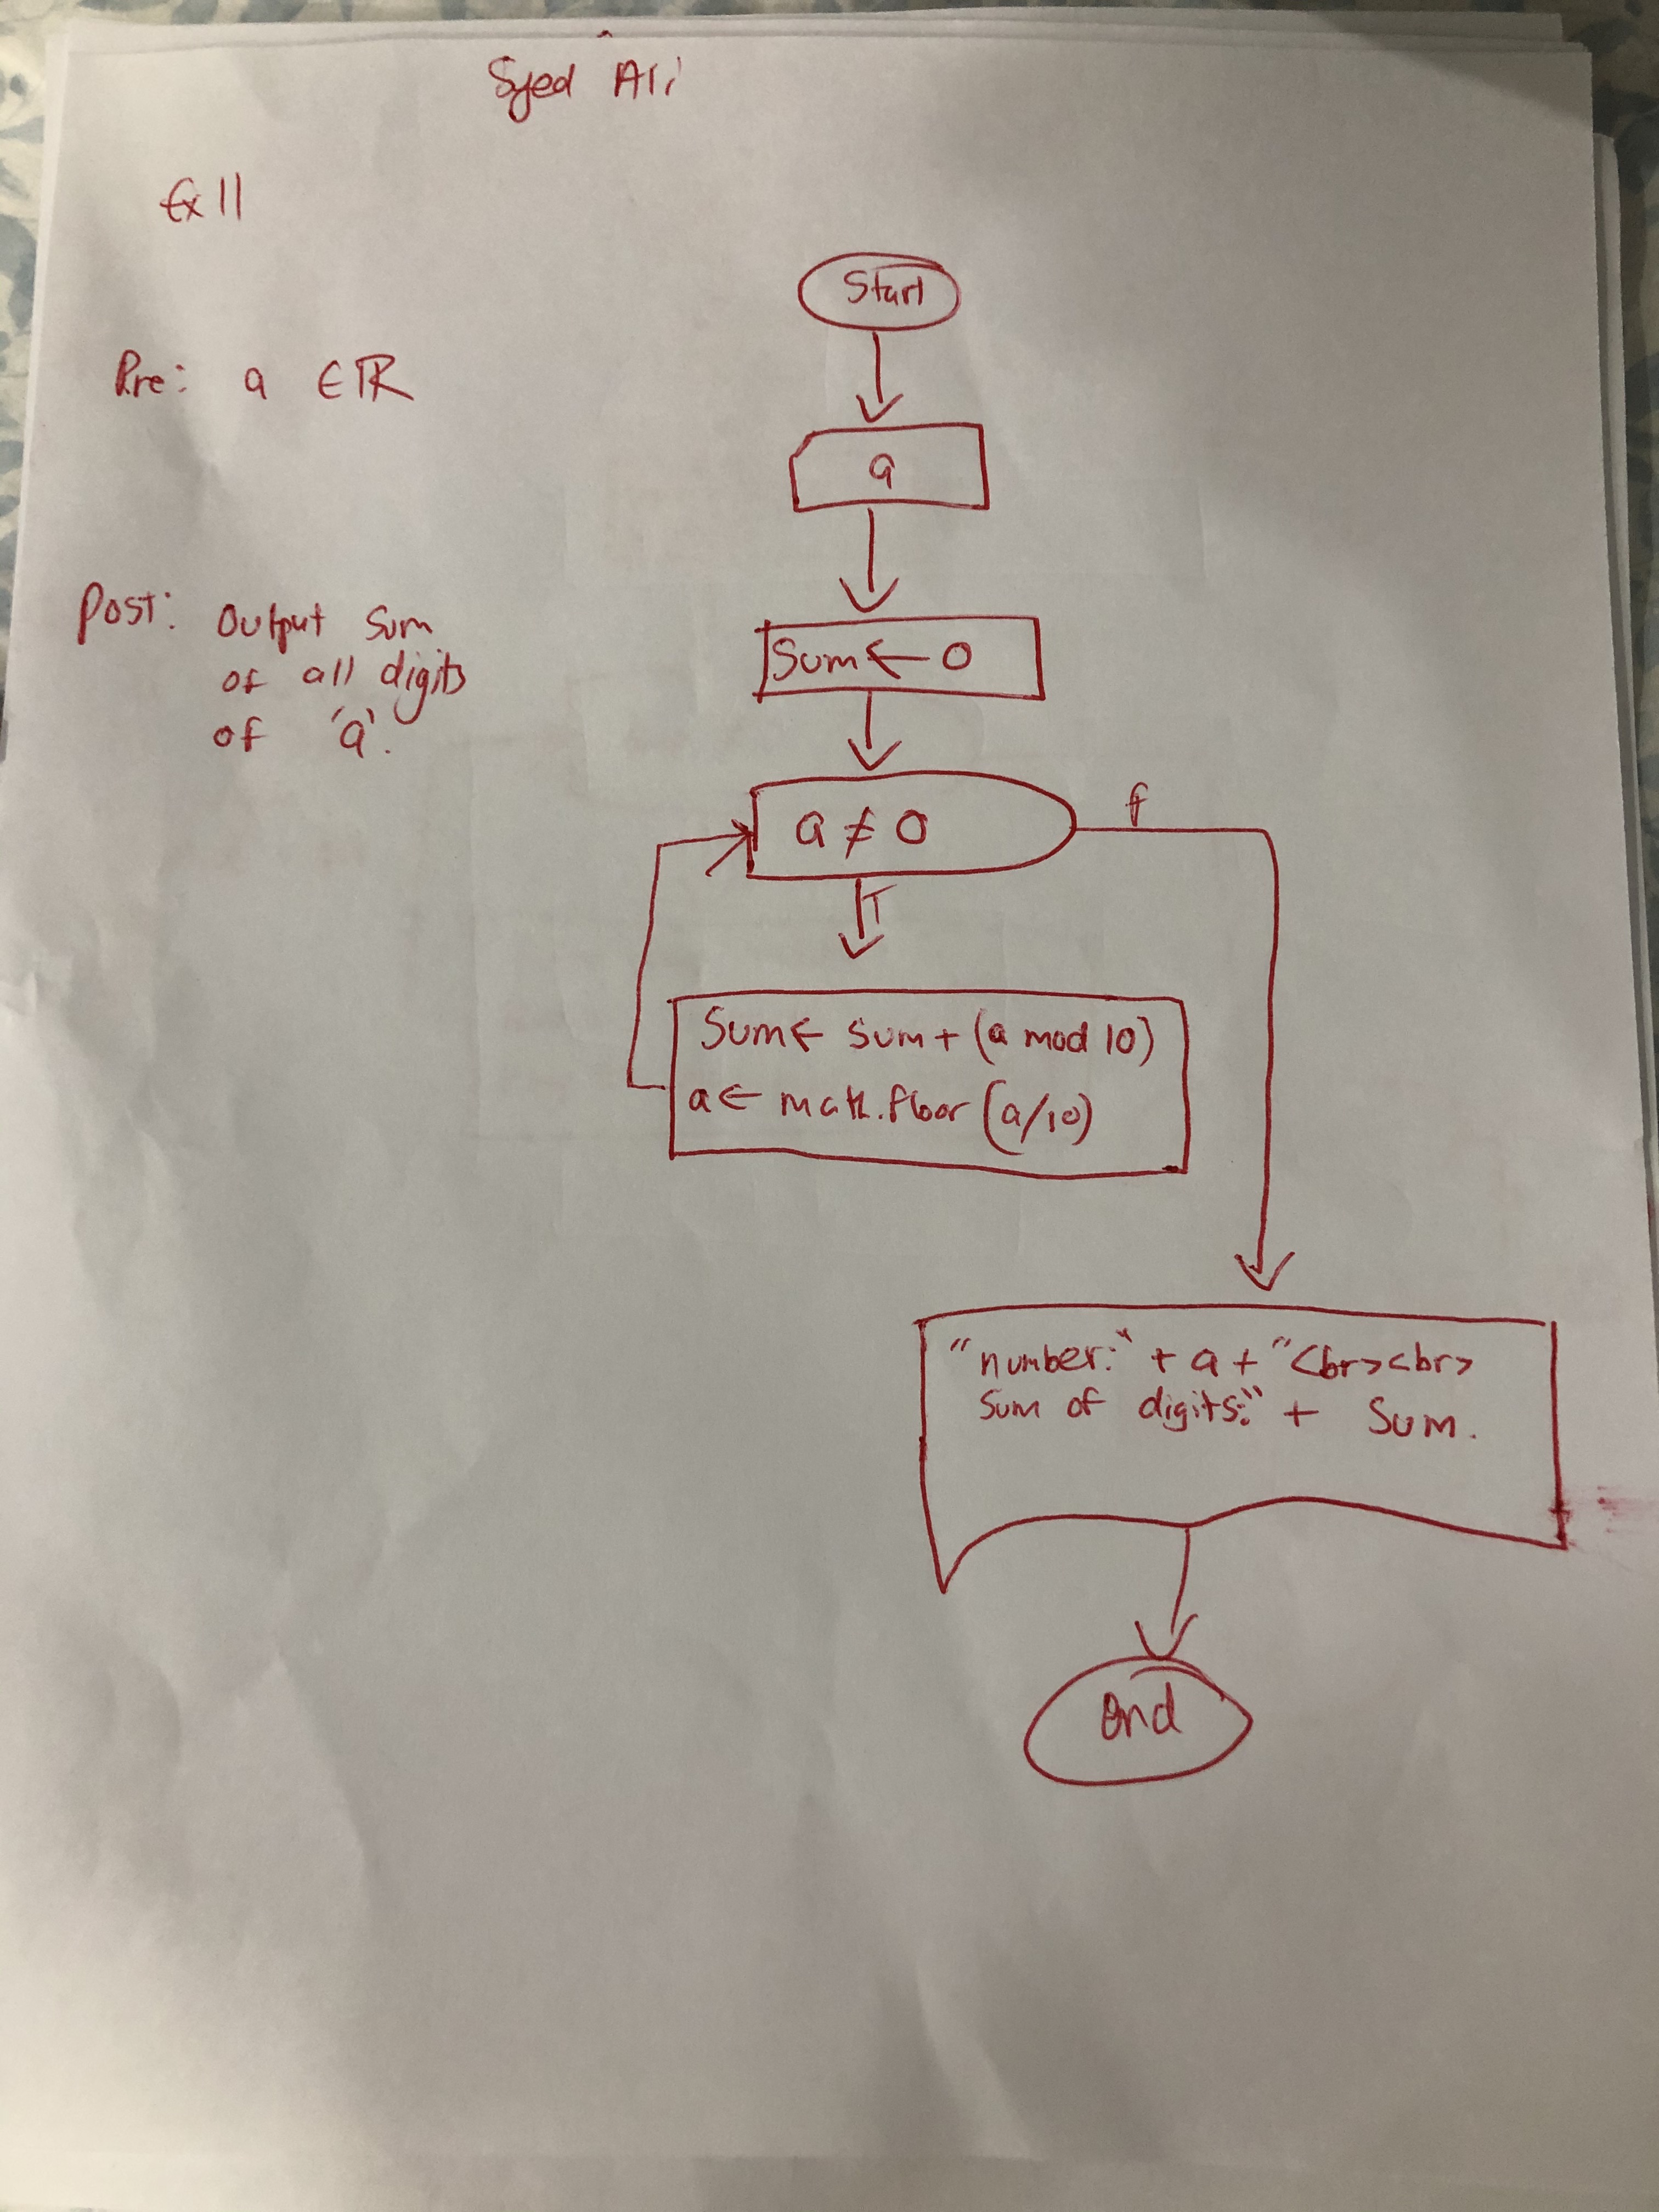 Syed Ali
Ex 11
Start
Pre: a ∈ ℝ
a
Post: Output sum
of all digits
of 'a'.
Sum ← 0
a ≠ 0
f
T
Sum ← sum + (a mod 10)
a ← math.floor (a/10)
"number:" + a + "<br><br>
Sum of digits:" + Sum.
End